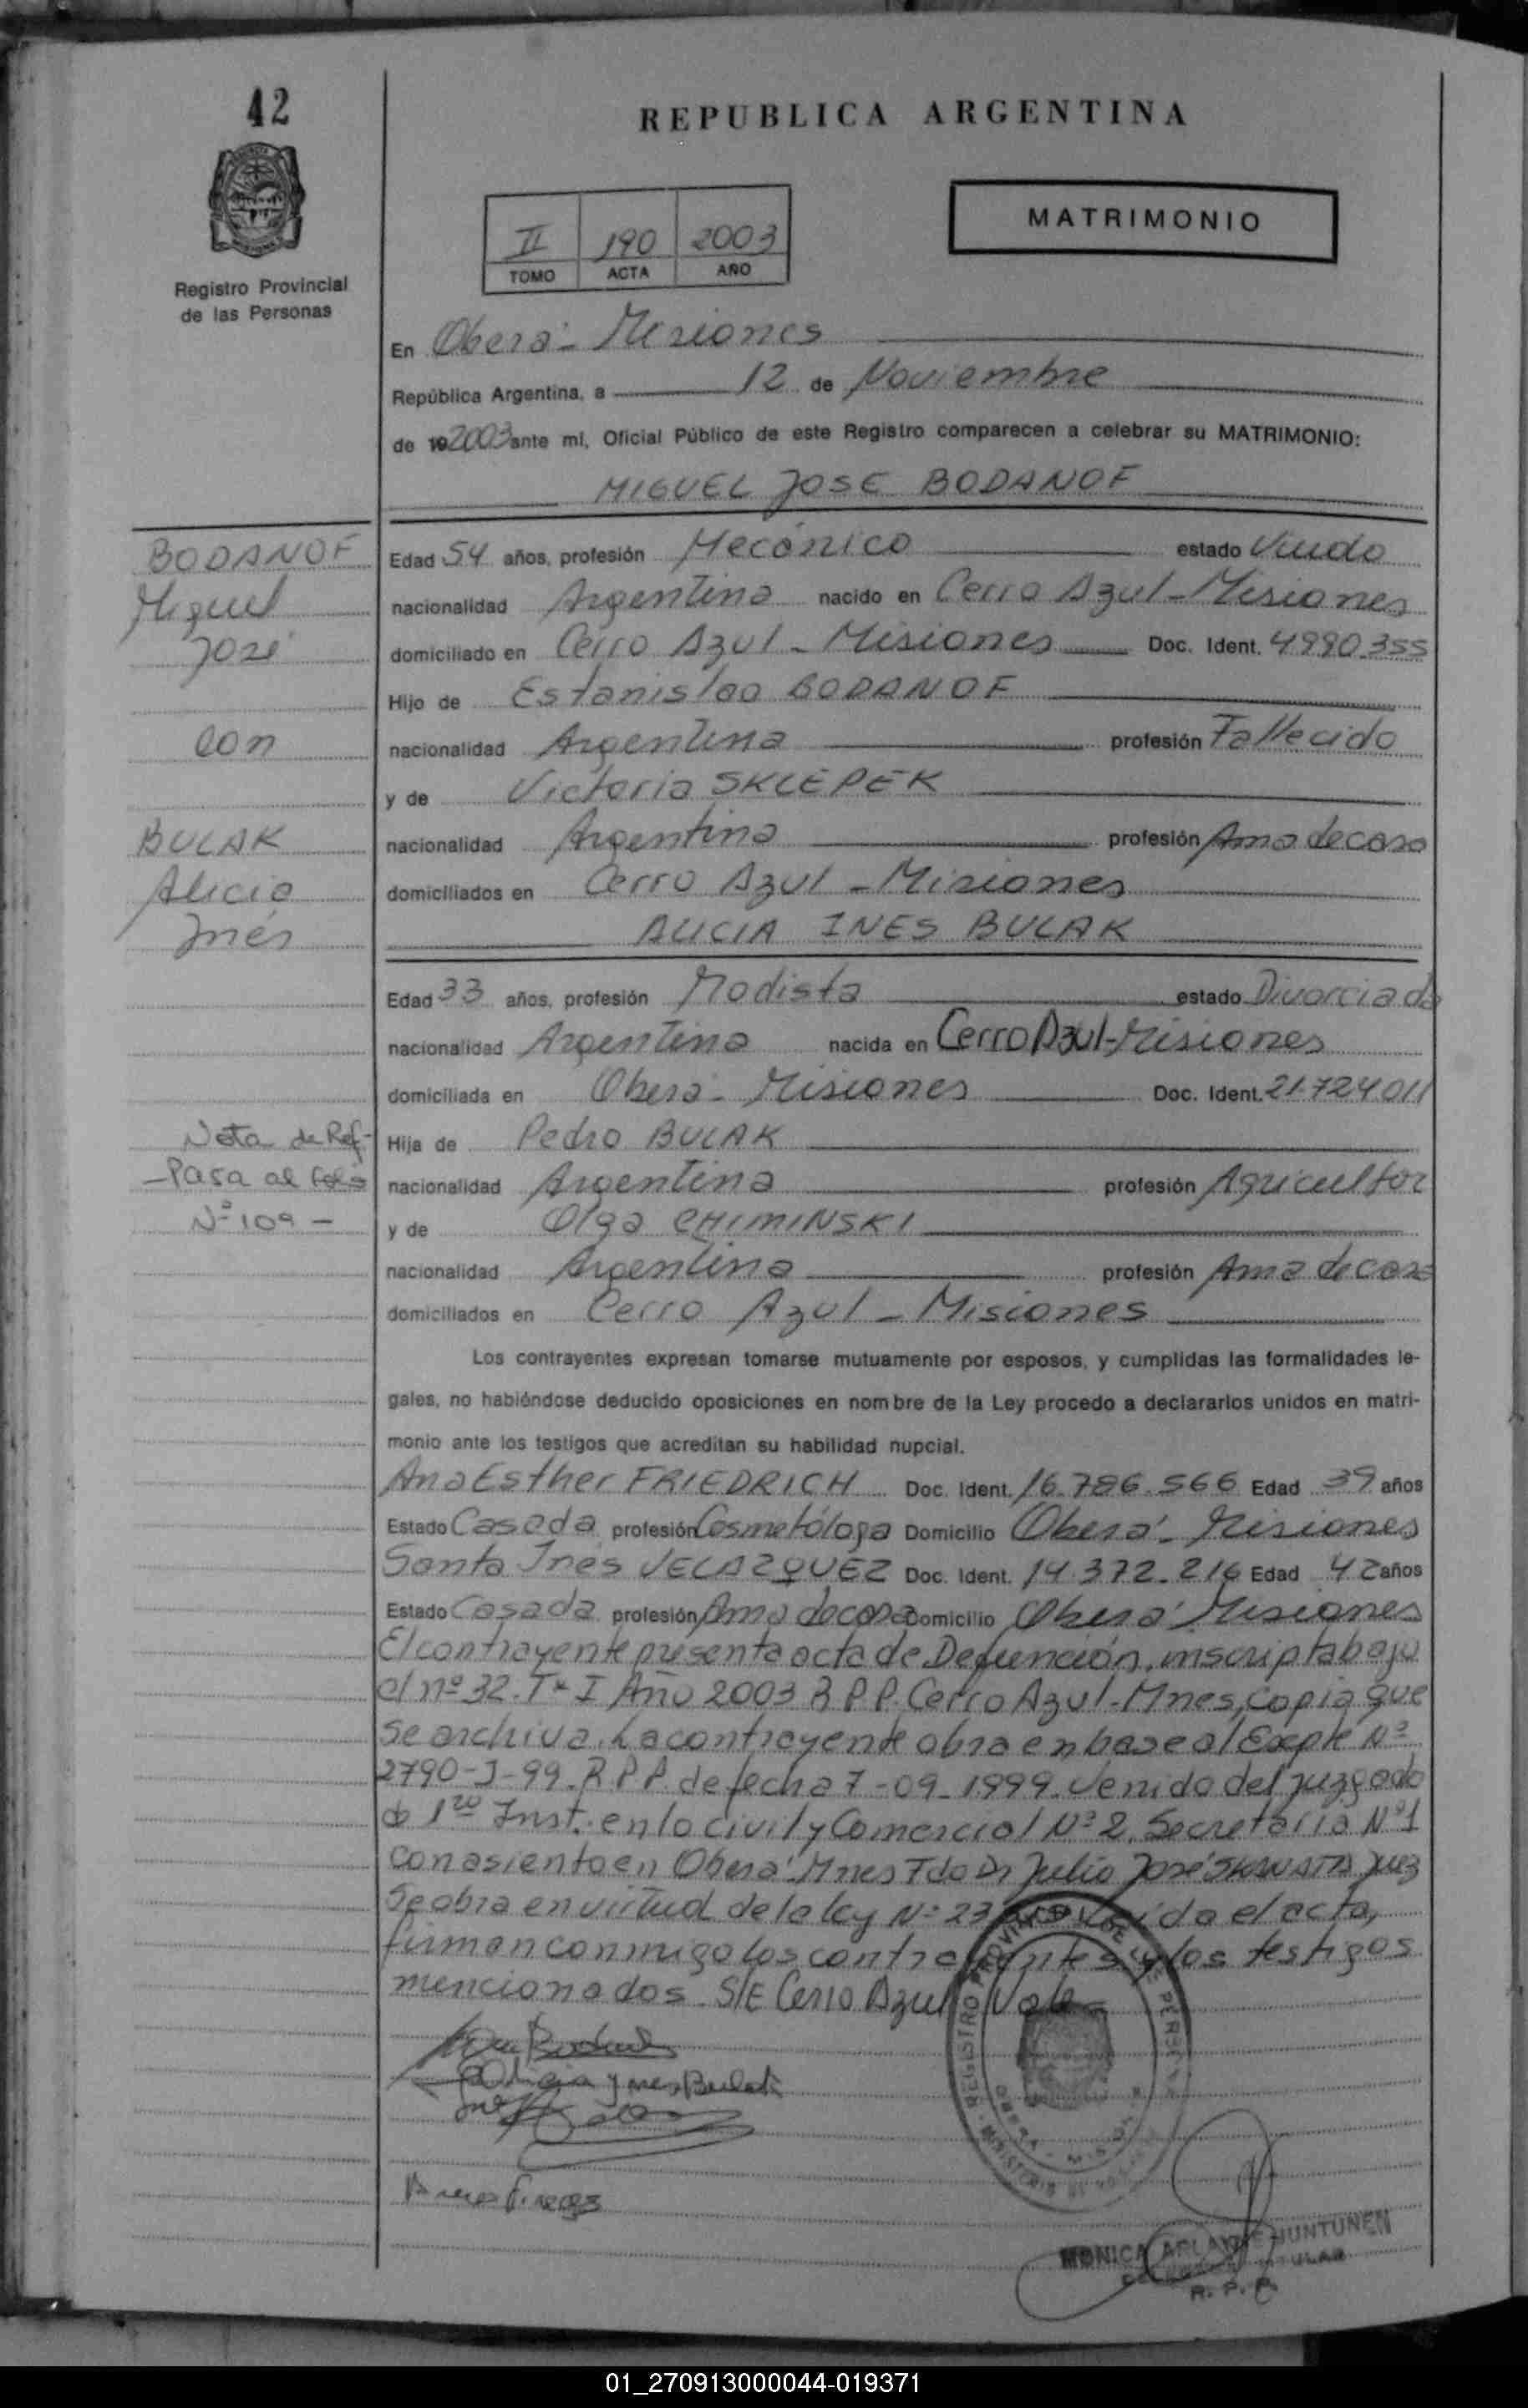 42
REPUBLICA ARGENTINA
MATRIMONIO
II 190 2003
TOMO ACTA AÑO
Registro Provincial
de las Personas
En Oberá - Misiones
República Argentina, a 12 de Noviembre
de 19 2003 ante mí, Oficial Público de este Registro comparecen a celebrar su MATRIMONIO:
MIGUEL JOSE BODANOF
BODANOF
Miguel
José
con
BULAK
Alicia
Inés
Edad 54 años, profesión Mecánico estado Viudo
nacionalidad Argentina nacido en Cerro Azul - Misiones
domiciliado en Cerro Azul - Misiones Doc. Ident. 4990.355
Hijo de Estanislao BODANOF
nacionalidad Argentina profesión Fallecido
y de Victoria SKLEPEK
nacionalidad Argentina profesión Ama de casa
domiciliados en Cerro Azul - Misiones
ALICIA INES BULAK
Edad 33 años, profesión Modista estado Divorciada
nacionalidad Argentina nacida en Cerro Azul-Misiones
domiciliada en Oberá - Misiones Doc. Ident. 21.724.011
Nota de Ref-
-Pasa al folio
Nº 109 -
Hija de Pedro BULAK
nacionalidad Argentina profesión Agricultor
y de Olga CHIMINSKI
nacionalidad Argentina profesión Ama de casa
domiciliados en Cerro Azul - Misiones
Los contrayentes expresan tomarse mutuamente por esposos, y cumplidas las formalidades le-
gales, no habiéndose deducido oposiciones en nombre de la Ley procedo a declararlos unidos en matri-
monio ante los testigos que acreditan su habilidad nupcial.
Ana Esther FRIEDRICH Doc. Ident. 16.786.566 Edad 39 años
Estado Casada profesión Cosmetóloga Domicilio Oberá - Misiones
Santa Inés VELAZQUEZ Doc. Ident. 14.372.216 Edad 42 años
Estado Casada profesión Ama de casa Domicilio Oberá Misiones
El contrayente presenta acta de Defunción, inscripta bajo
el nº 32. Tº I Año 2003 R.P.P. Cerro Azul-Mnes, copia que
se archiva. La contrayente obra en base al Expte Nº
2790-J-99. R.P.P. de fecha 7-09-1999. Venido del juzgado
de 1ra Inst. en lo civil y Comercial Nº 2, Secretaría Nº 1
con asiento en Oberá Mnes Fdo Dr Julio José Juez
Se obra en virtud de la ley Nº 23 el acta,
firman conmigo los contrayentes y los testigos
mencionados. S/E Cerro Azul Vale
REGISTRO
MONICA HUNTUNEN
TITULAR
R. P. P.
01_270913000044-019371